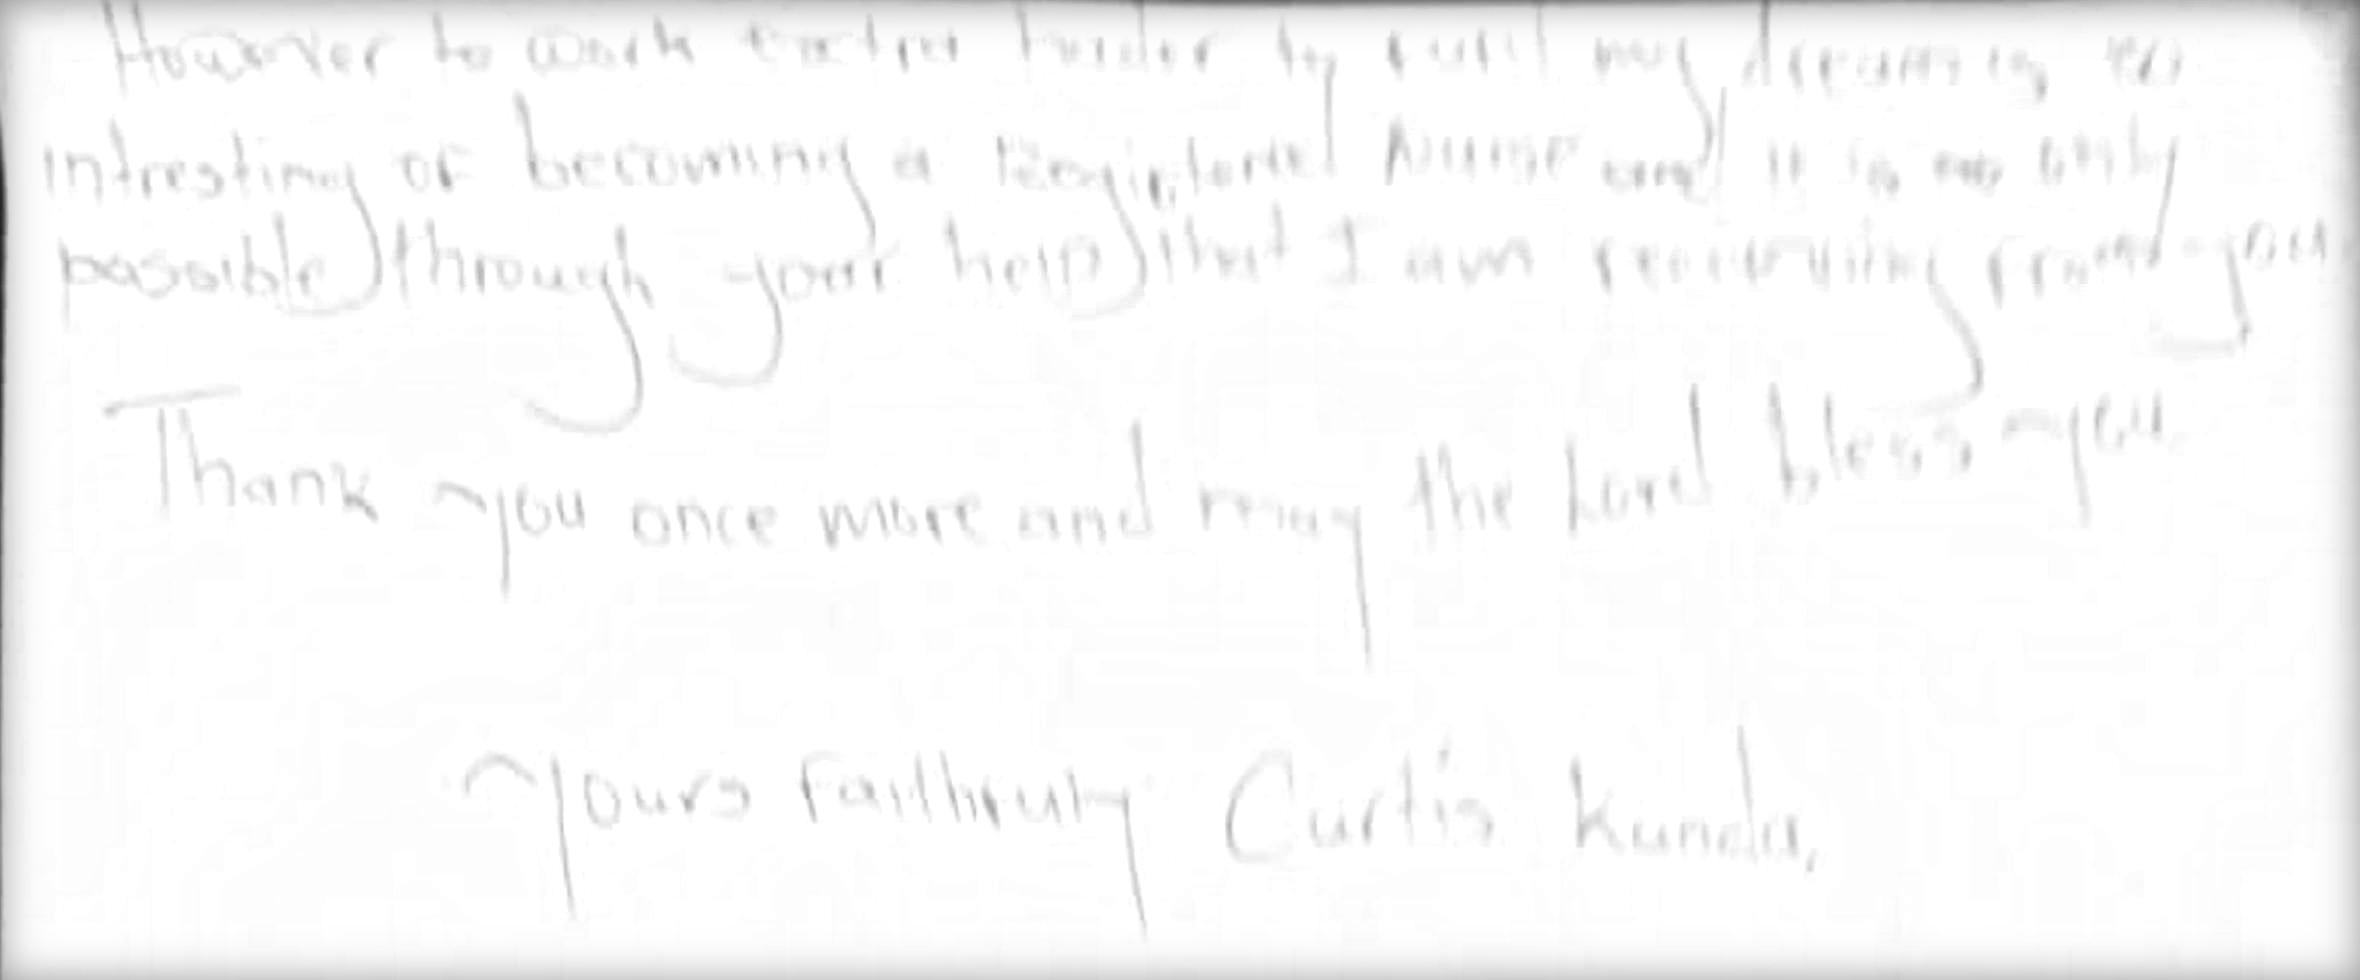 However to work extra harder to fulfil my dreams
intresting of becoming a Registered Nurse and it is only
possible through your help that I am receiving from you
Thank you once more and may the Lord bless you
Yours Faithfully Curtis Kunda.